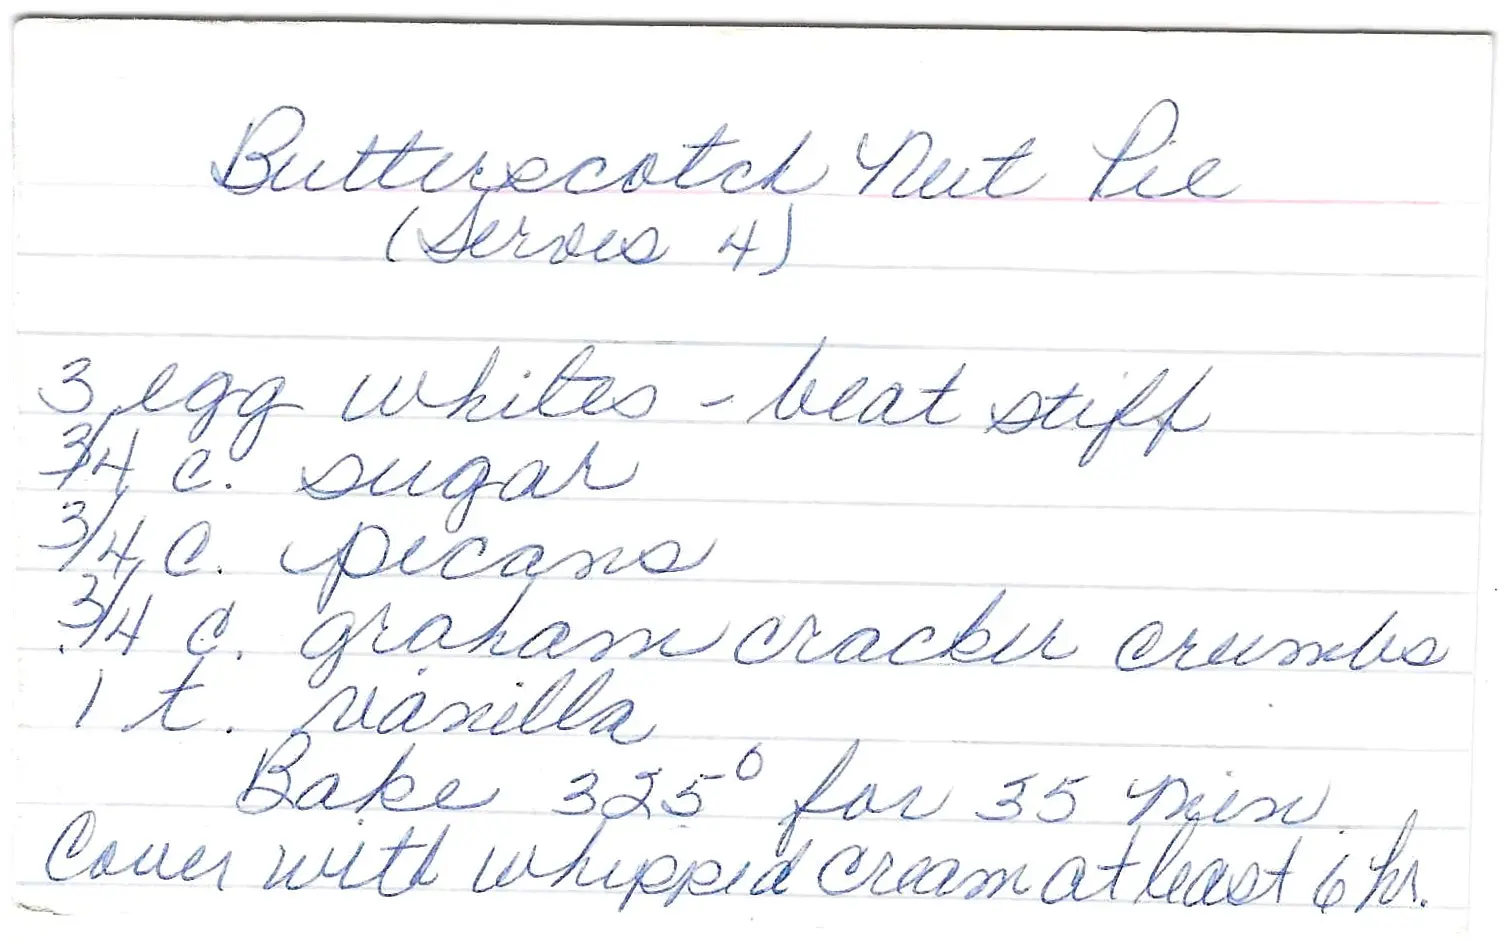 Butterscotch Nut Pie
(Serves 4)
3 egg whites - beat stiff
3/4 c. sugar
3/4 c. pecans
3/4 c. graham cracker crumbs
1 t. vanilla
Bake 325° for 35 min.
Cover with whipped cream at least 6 hr.